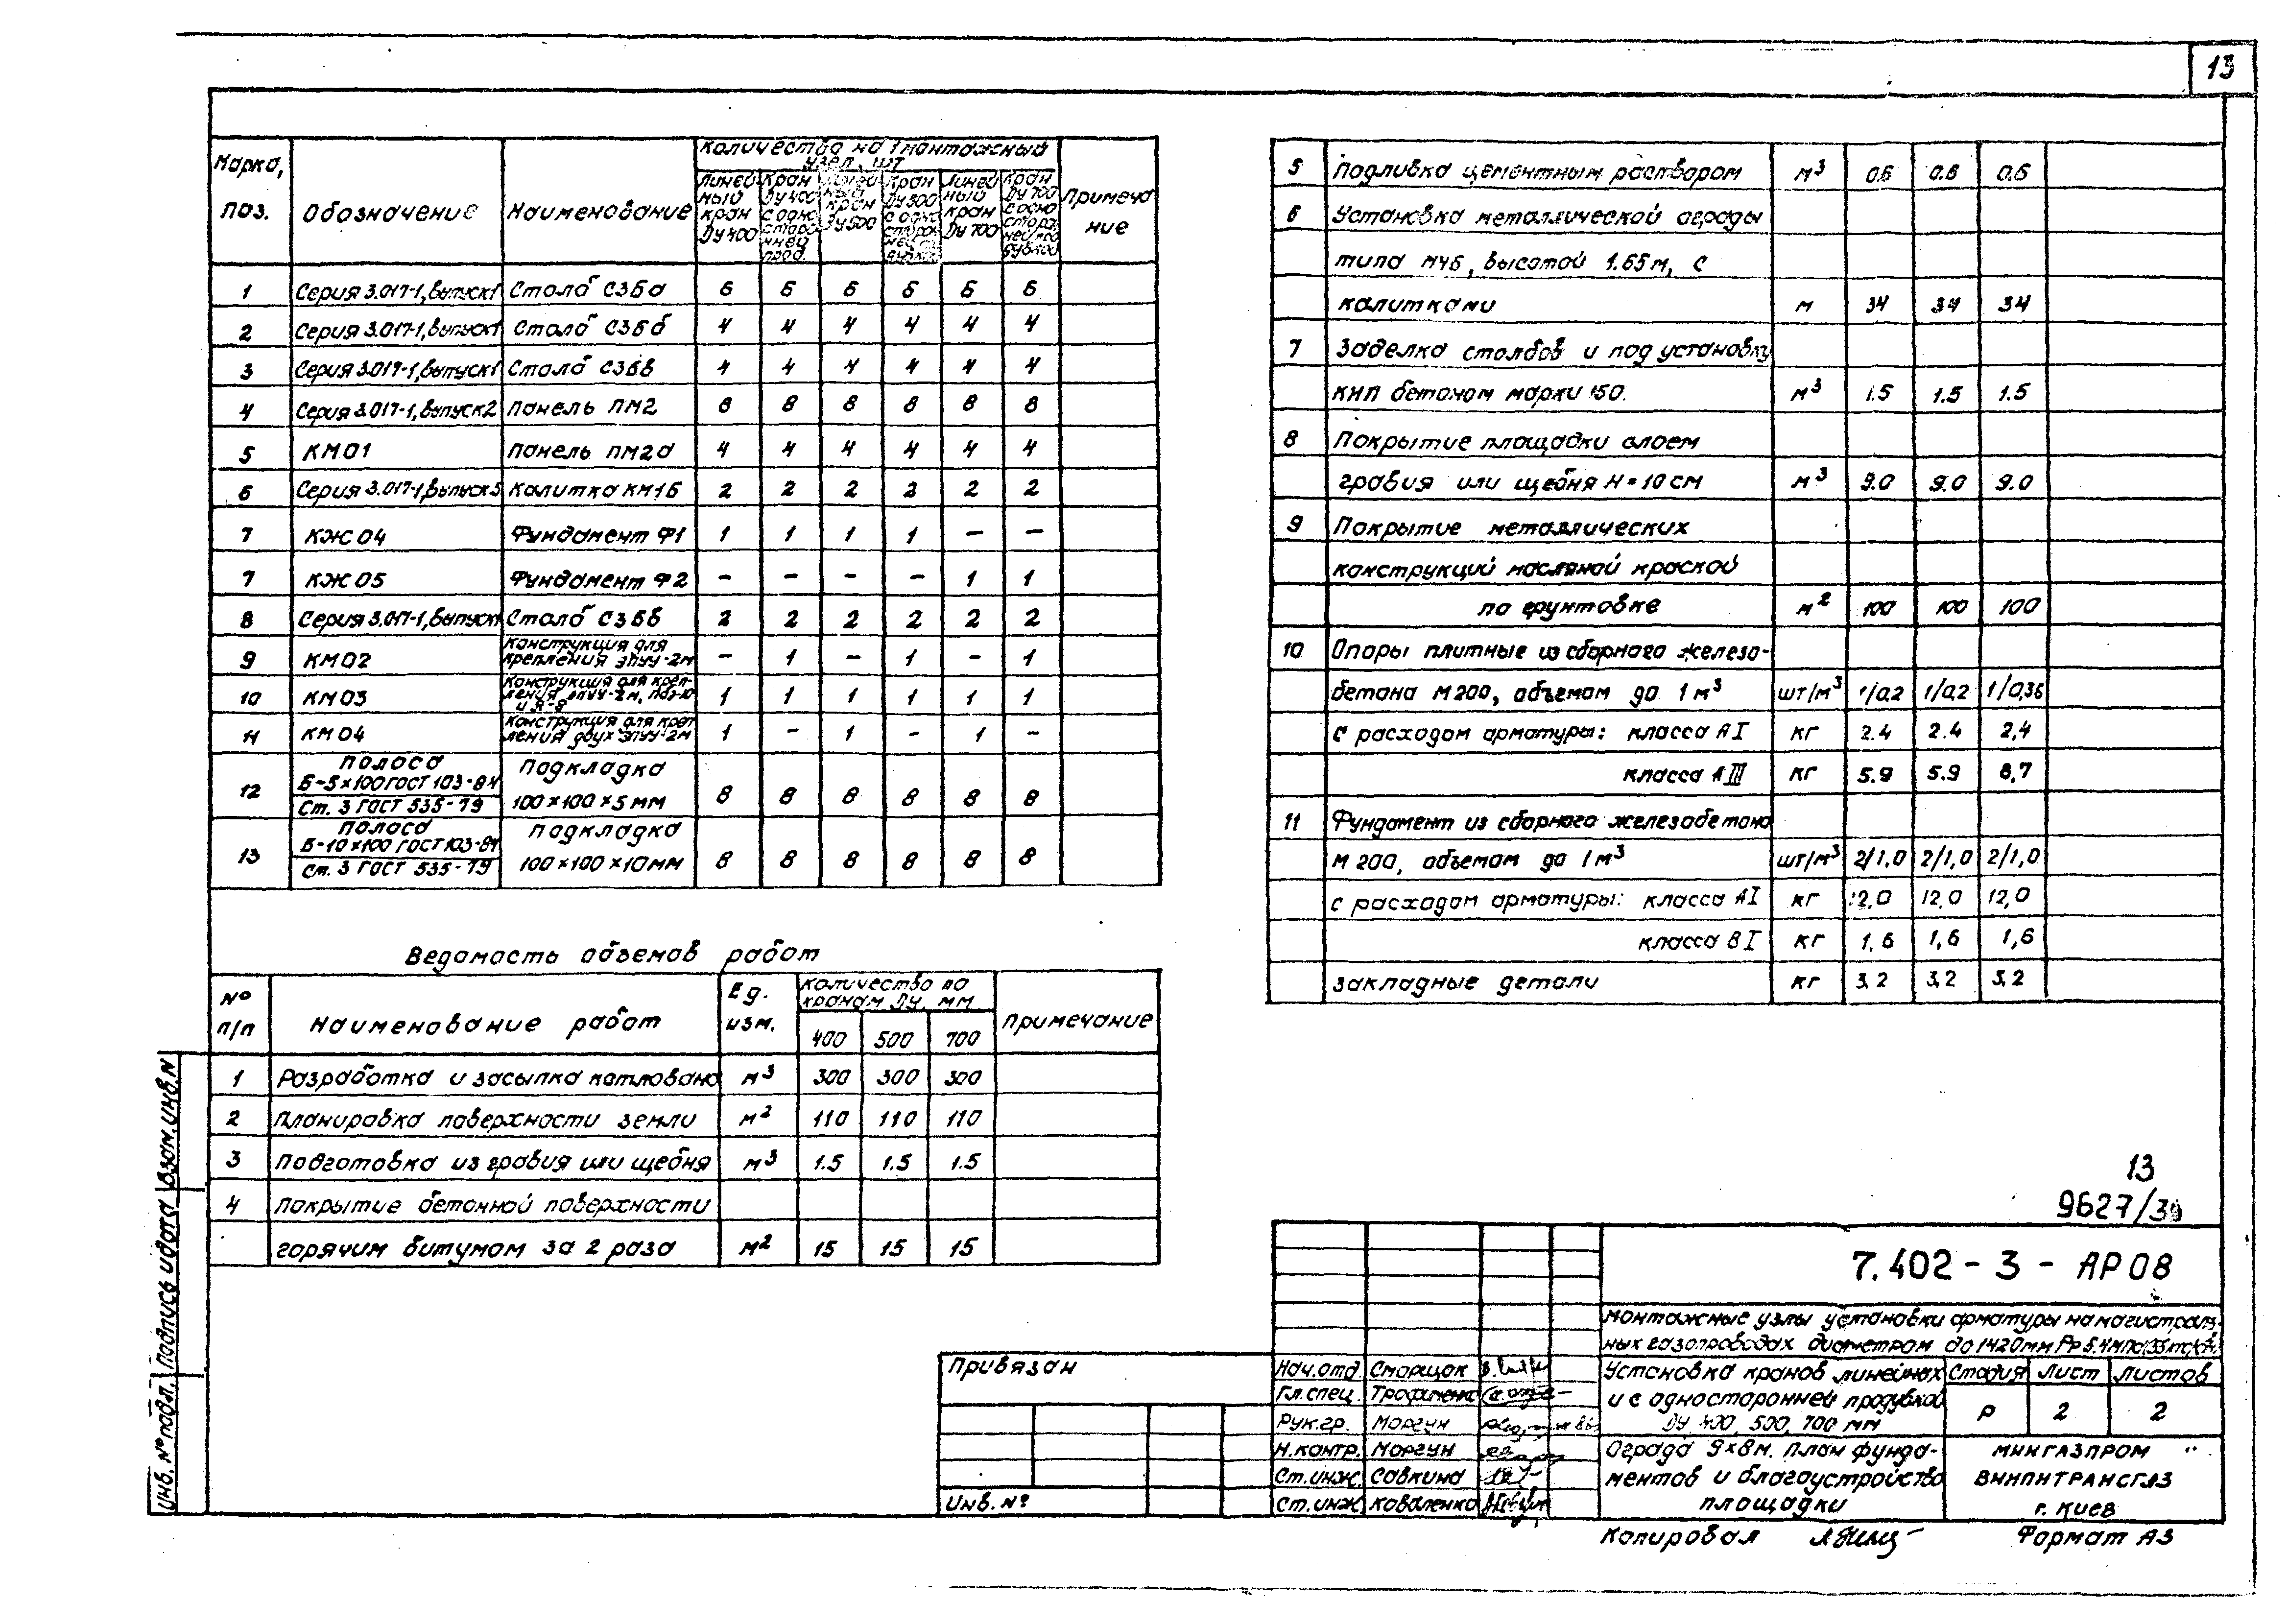 13
Марка, поз. Обозначение Наименование Количество на 1 монтажный узел, шт Примечание
Линейный кран Ду 400 Кран Ду 400 с односторонней прод. Линейный кран Ду 500 Кран Ду 500 с односторонней продувкой Линейный кран Ду 700 Кран Ду 700 с односторонней продувкой
1 Серия 3.017-1, выпуск 1 Столб С36а 6 6 6 6 6 6
2 Серия 3.017-1, выпуск 1 Столб С36б 4 4 4 4 4 4
3 Серия 3.017-1, выпуск 1 Столб С36в 4 4 4 4 4 4
4 Серия 3.017-1, выпуск 2 Панель ПМ2 8 8 8 8 8 8
5 КМ01 Панель ПМ2а 4 4 4 4 4 4
6 Серия 3.017-1, выпуск 5 Калитка КМ1Б 2 2 2 2 2 2
7 КЖ04 Фундамент Ф1 1 1 1 1 – –
7 КЖ05 Фундамент Ф2 – – – – 1 1
8 Серия 3.017-1, выпуск Столб С36в 2 2 2 2 2 2
9 КМ02 Конструкция для крепления ЭПУУ-2м – 1 – 1 – 1
10 КМ03 Конструкция для крепления ЭПУУ-2м, 1 1 1 1 1 1
11 КМ04 Конструкция для крепления двух ЭПУУ-2м 1 – 1 – 1 –
12 полоса Б-5×100 ГОСТ 103-84 Ст. 3 ГОСТ 535-79 Подкладка 100×100×5мм 8 8 8 8 8 8
13 полоса Б-10×100 ГОСТ 103-84 Ст. 3 ГОСТ 535-79 Подкладка 100×100×10мм 8 8 8 8 8 8
Ведомость объемов работ
№ п/п Наименование работ Ед. изм. Количество по кранам Ду, мм Примечание
400 500 700
1 Разработка и засыпка котлована м³ 300 300 300
2 Планировка поверхности земли м² 110 110 110
3 Подготовка из гравия или щебня м³ 1.5 1.5 1.5
4 Покрытие бетонной поверхности
горячим битумом за 2 раза м² 15 15 15
5 Подливка цементным раствором м³ 0.6 0.6 0.6
6 Установка металлической ограды
типа М4Б, высотой 1.65м, с
калитками м 34 34 34
7 Заделка столбов и под установку
КИП бетоном марки 150. м³ 1.5 1.5 1.5
8 Покрытие площадки слоем
гравия или щебня Н=10см м³ 9.0 9.0 9.0
9 Покрытие металлических
конструкций масляной краской
по грунтовке м² 100 100 100
10 Опоры плитные из сборного железо-
бетона М200, объемом до 1м³ шт/м³ 1/0.2 1/0.2 1/0,36
с расходом арматуры: класса АI кг 2.4 2.4 2,4
класса АIII кг 5.9 5.9 8,7
11 Фундамент из сборного железобетона
М 200, объемом до 1м³ шт/м³ 2/1,0 2/1,0 2/1,0
с расходом арматуры: класса АI кг 12,0 12,0 12,0
класса ВI кг 1,6 1,6 1,6
закладные детали кг 3,2 3,2 3,2
13
9627/
7.402-3-АР08
Монтажные узлы установки арматуры на магистраль-
ных газопроводах диаметром до 1420мм Рр 5.4МПа
Установка кранов линейных
и с односторонней продувкой
Ду 400, 500, 700 мм
Стадия Лист Листов
Р 2 2
Ограда 9×8м. План фунда-
ментов и благоустройство
площадки
МИНГАЗПРОМ
ВНИПИТРАНСГАЗ
г. Киев
Привязан
Инв. №
Нач.отд. Сморщок
Гл.спец. Трофименко
Рук.гр. Моргун
Н.контр. Моргун
Ст.инж. Савкина
Ст.инж. Коваленко
Копировал Формат А3
Инв. № подл. Подпись и дата Взам. инв. №